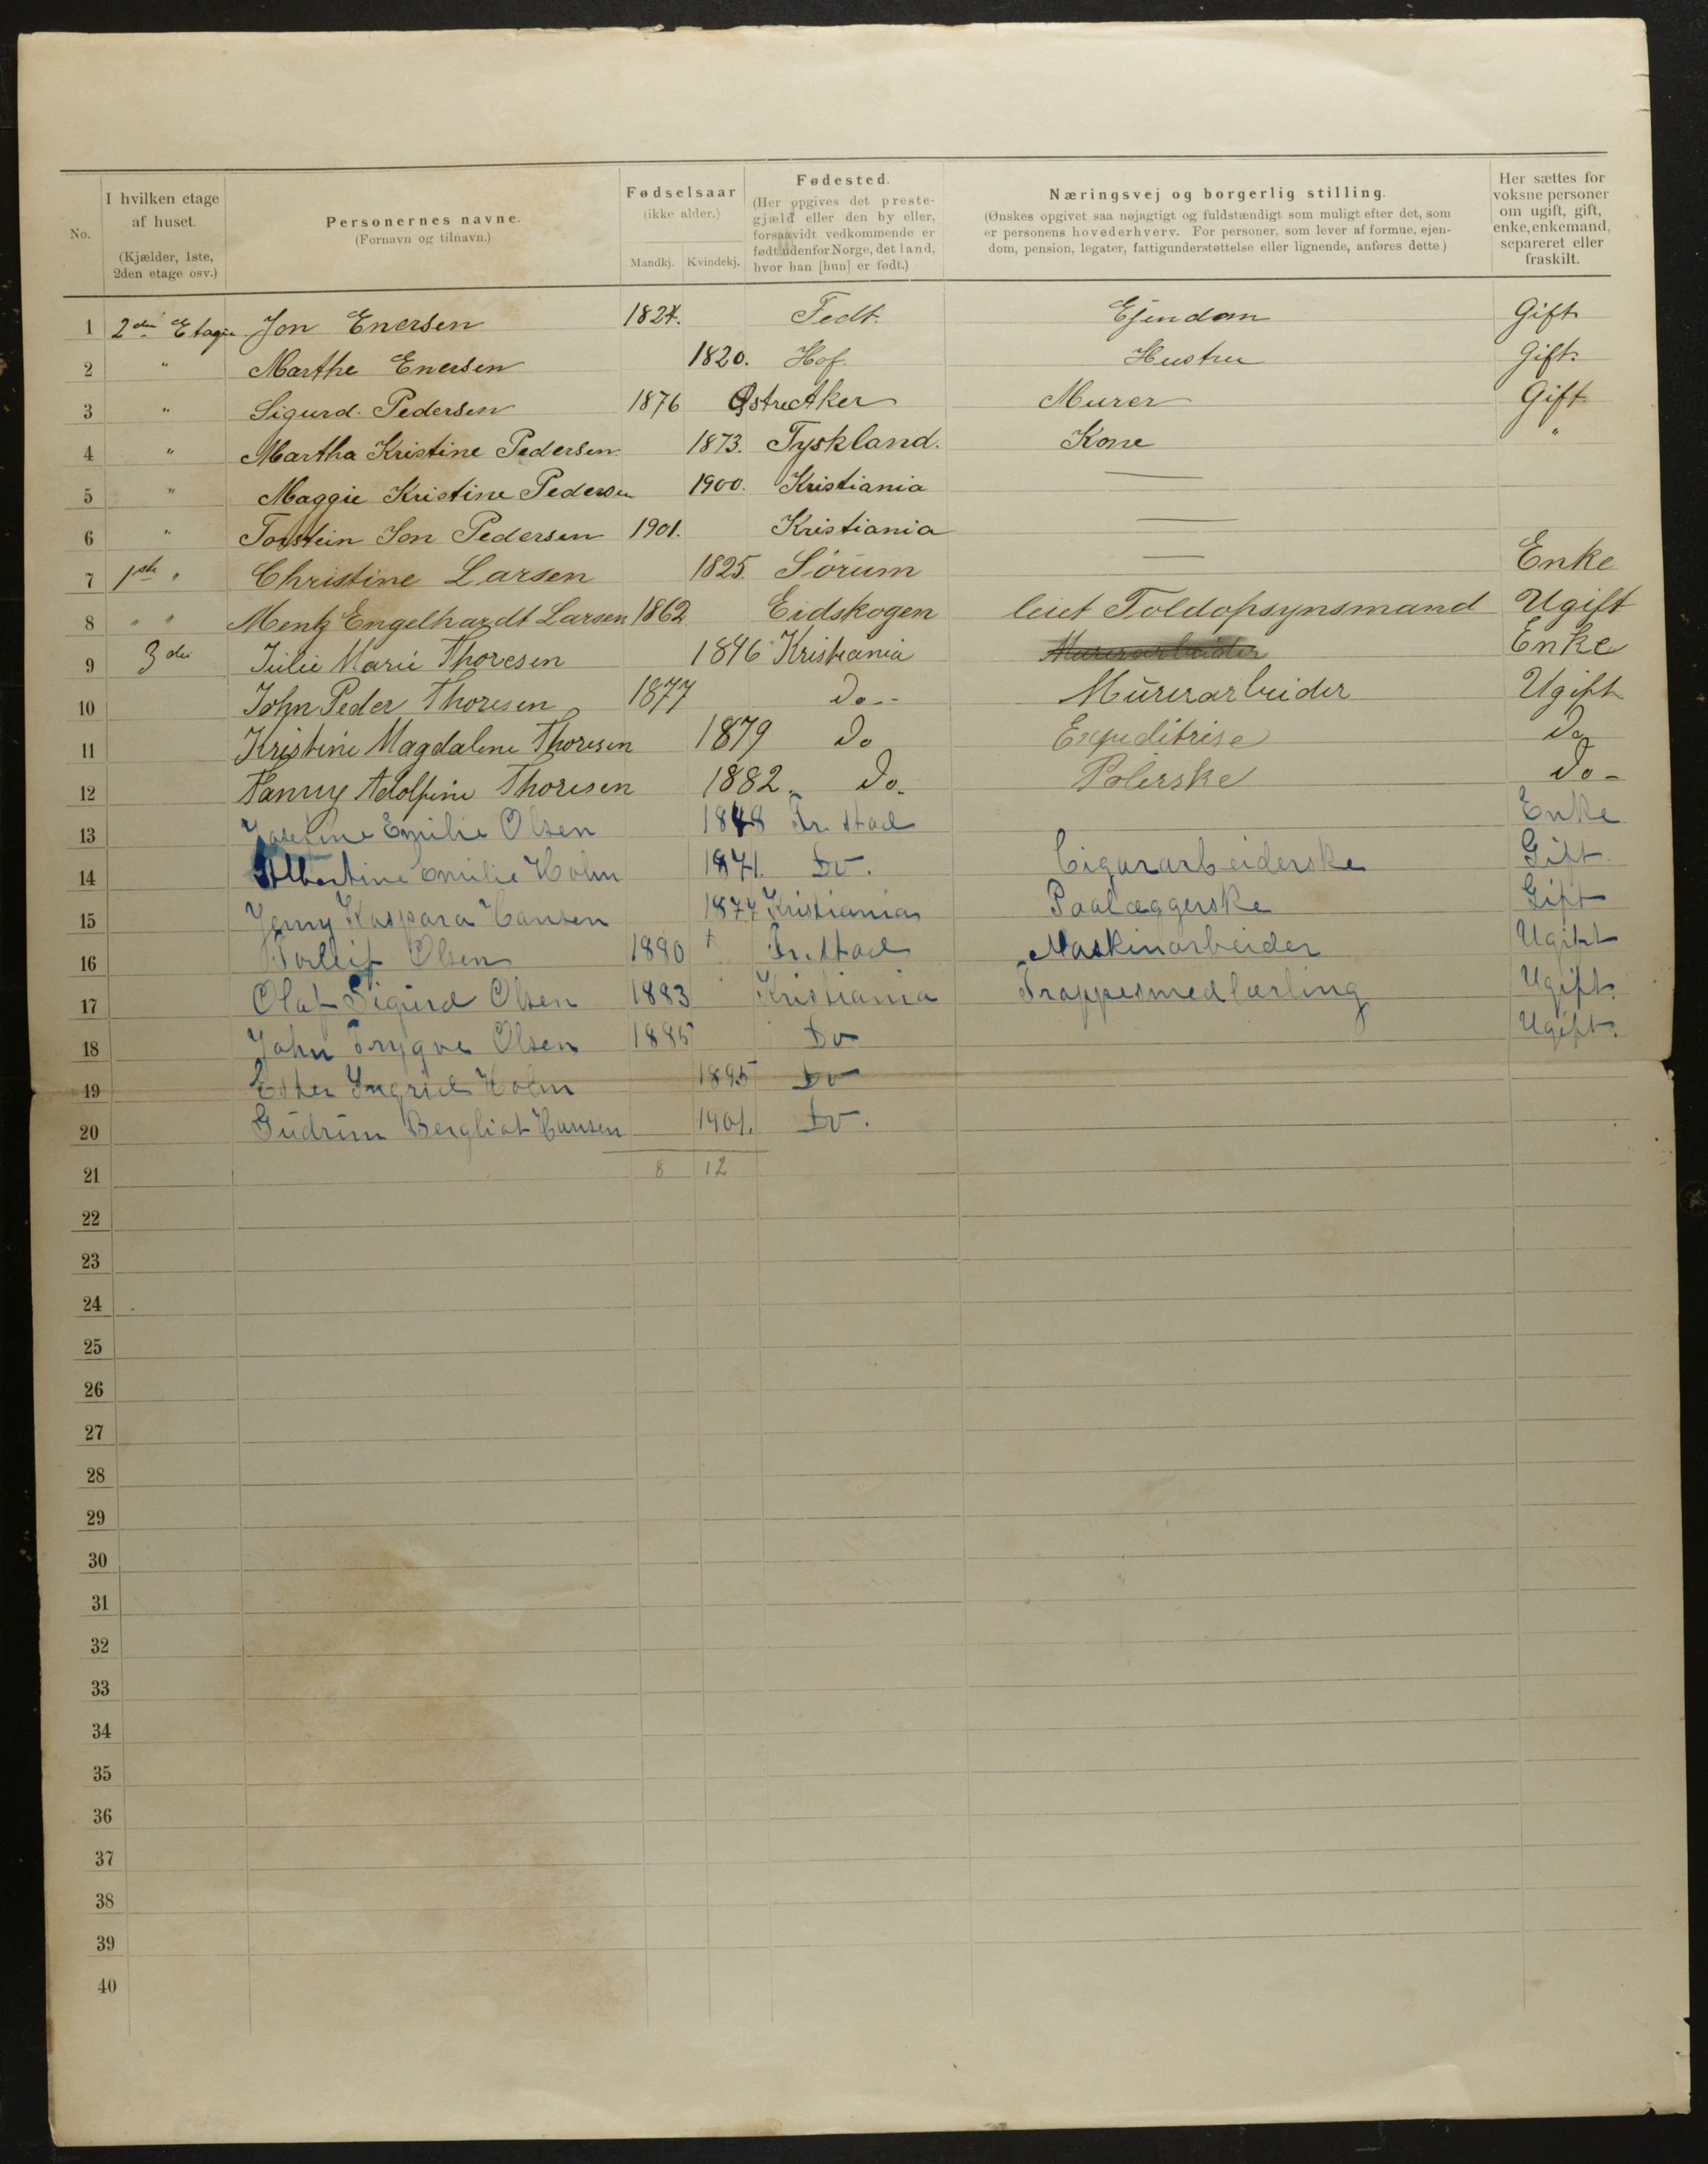 No. | I hvilken etage af huset. (Kjælder, 1ste, 2den etage osv.) | Personernes navne. (Fornavn og tilnavn.) | Fødselsaar (ikke alder.) Mandkj. Kvindekj. | Fødested. (Her opgives det prestegjæld eller den by eller, forsaavidt vedkommende er født udenfor Norge, det land, hvor han [hun] er født.) | Næringsvej og borgerlig stilling. (Ønskes opgivet saa nøjagtigt og fuldstændigt som muligt efter det, som er personens hovederhverv. For personer, som lever af formue, ejendom, pension, legater, fattigunderstøttelse eller lignende, anføres dette) | Her sættes for voksne personer om ugift, gift, enke, enkemand, separeret eller fraskilt.
1 2den Etage Jon Enersen 1824. Tedt. Ejendom Gift
2 " Marthe Enersen 1820. Hof. Hustru Gift.
3 " Sigurd. Pedersen 1876 Østre Aker Murer Gift
4 " Martha Kristine Pedersen 1873. Tyskland. Kone "
5 " Maggie Kristine Pedersen 1900. Kristiania —
6 " Torstein Jon Pedersen 1901. Kristiania —
7 1ste " Christine Larsen 1825. Sørum — Enke
8 " " Mentz Engelhardt Larsen 1862 Eidskogen leiet Toldopsynsmand Ugift
9 3die Julie Marie Thoresen 1846 Kristiania Murerarbeider Enke
10 John Peder Thoresen 1877 Do.- Murerarbeider Ugift
11 Kristine Magdalene Thoresen 1879 Do Expeditrise Do
12 Fanny Adolfine Thoresen 1882. Do. Polerske Do-
13 Josefine Emilie Olsen 1848 Fr. stad Enke
14 Albertine Emilie Holm 1871. Do. Cigararbeiderske Gift.
15 Jenny Kaspara Hansen 1877 Kristiania Paalæggerske Gift
16 Torleif Olsen 1880 Fr. stad Maskinarbeider Ugift
17 Olaf Sigurd Olsen 1883 Kristiania Trappesmedlærling Ugift.
18 John Trygve Olsen 1885 Do Ugift.
19 Ester Ingrid Holm 1895 Do
20 Gudrun Bergliot Hansen 1901. Do.
21 8 12
22
23
24
25
26
27
28
29
30
31
32
33
34
35
36
37
38
39
40